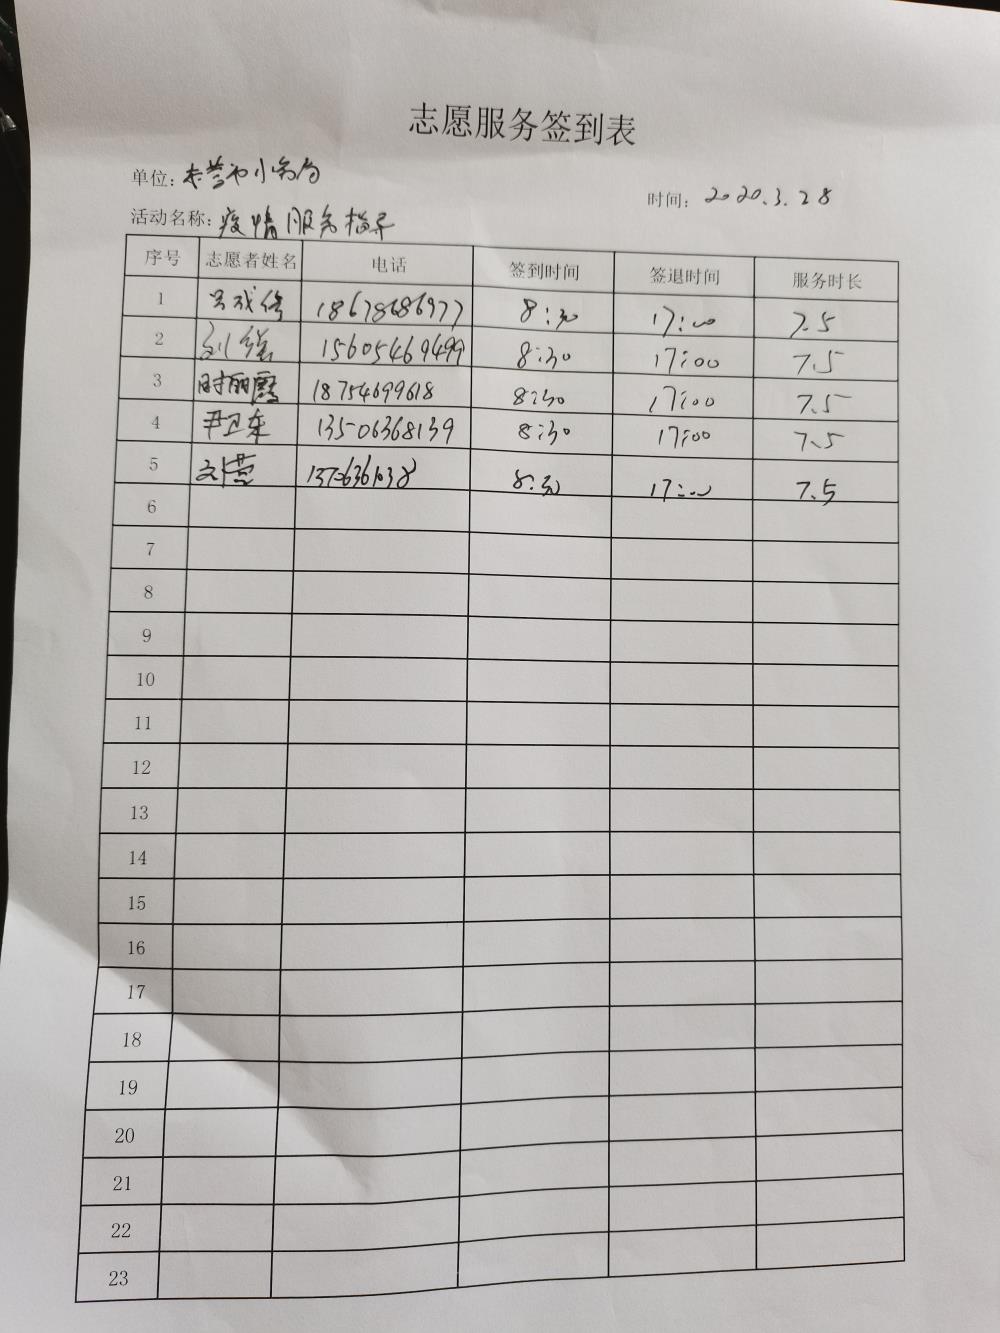 志愿服务签到表
单位:东营市水务局
时间: 2020.3.28
活动名称:疫情服务指导
序号 志愿者姓名 电话 签到时间 签退时间 服务时长
1 18678686977 8:30 17:00 7.5
2 刘强 15605469499 8:30 17:00 7.5
3 时丽霞 18754699618 8:30 17:00 7.5
4 尹卫东 13506368139 8:30 17:00 7.5
5 刘营 8:30 17:00 7.5
6
7
8
9
10
11
12
13
14
15
16
17
18
19
20
21
22
23